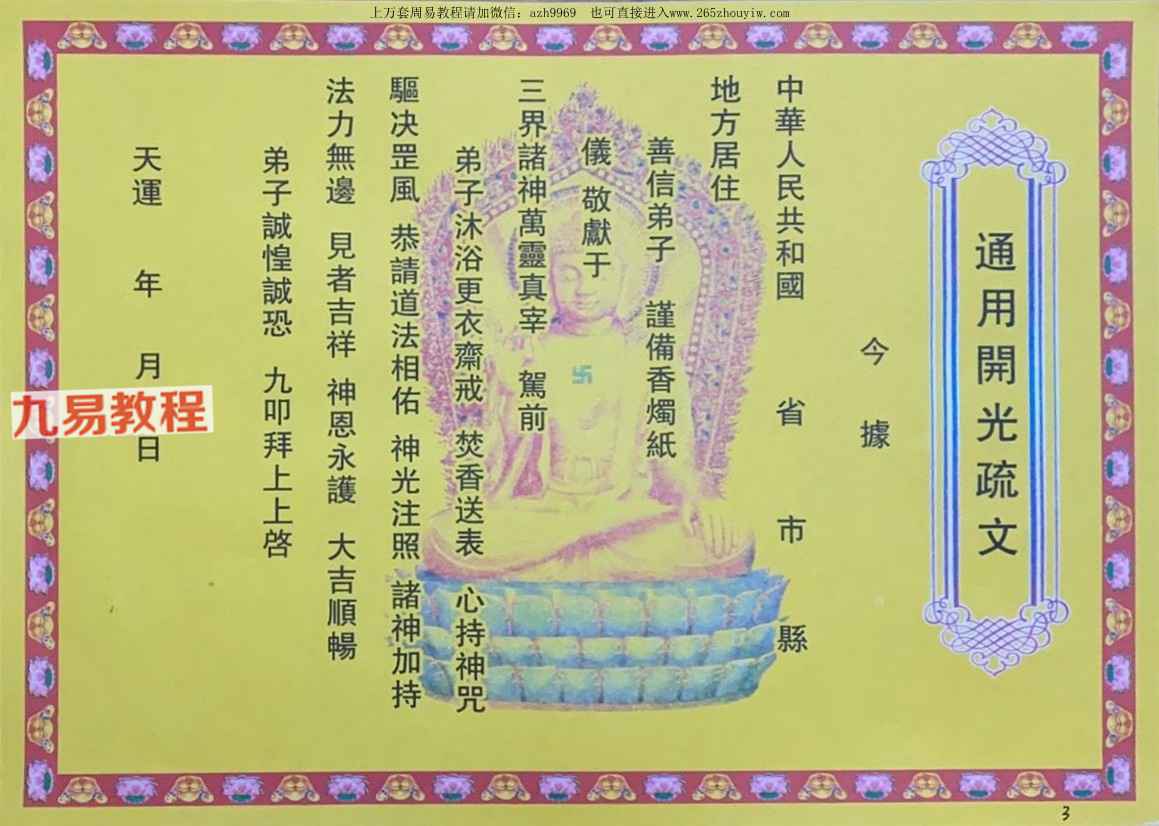 上万套周易教程请加微信：azh9969 也可直接进入www.265zhouyiw.com
通用開光疏文
今據
中華人民共和國 省 市 縣
地方居住
善信弟子 謹備香燭紙
儀 敬獻于
三界諸神萬靈真宰 駕前
弟子沐浴更衣齋戒 焚香送表 心持神咒
驅决罡風 恭請道法相佑 神光注照 諸神加持
法力無邊 見者吉祥 神恩永護 大吉順暢
弟子誠惶誠恐 九叩拜上上啓
天運 年 月 日
九易教程
卐
3